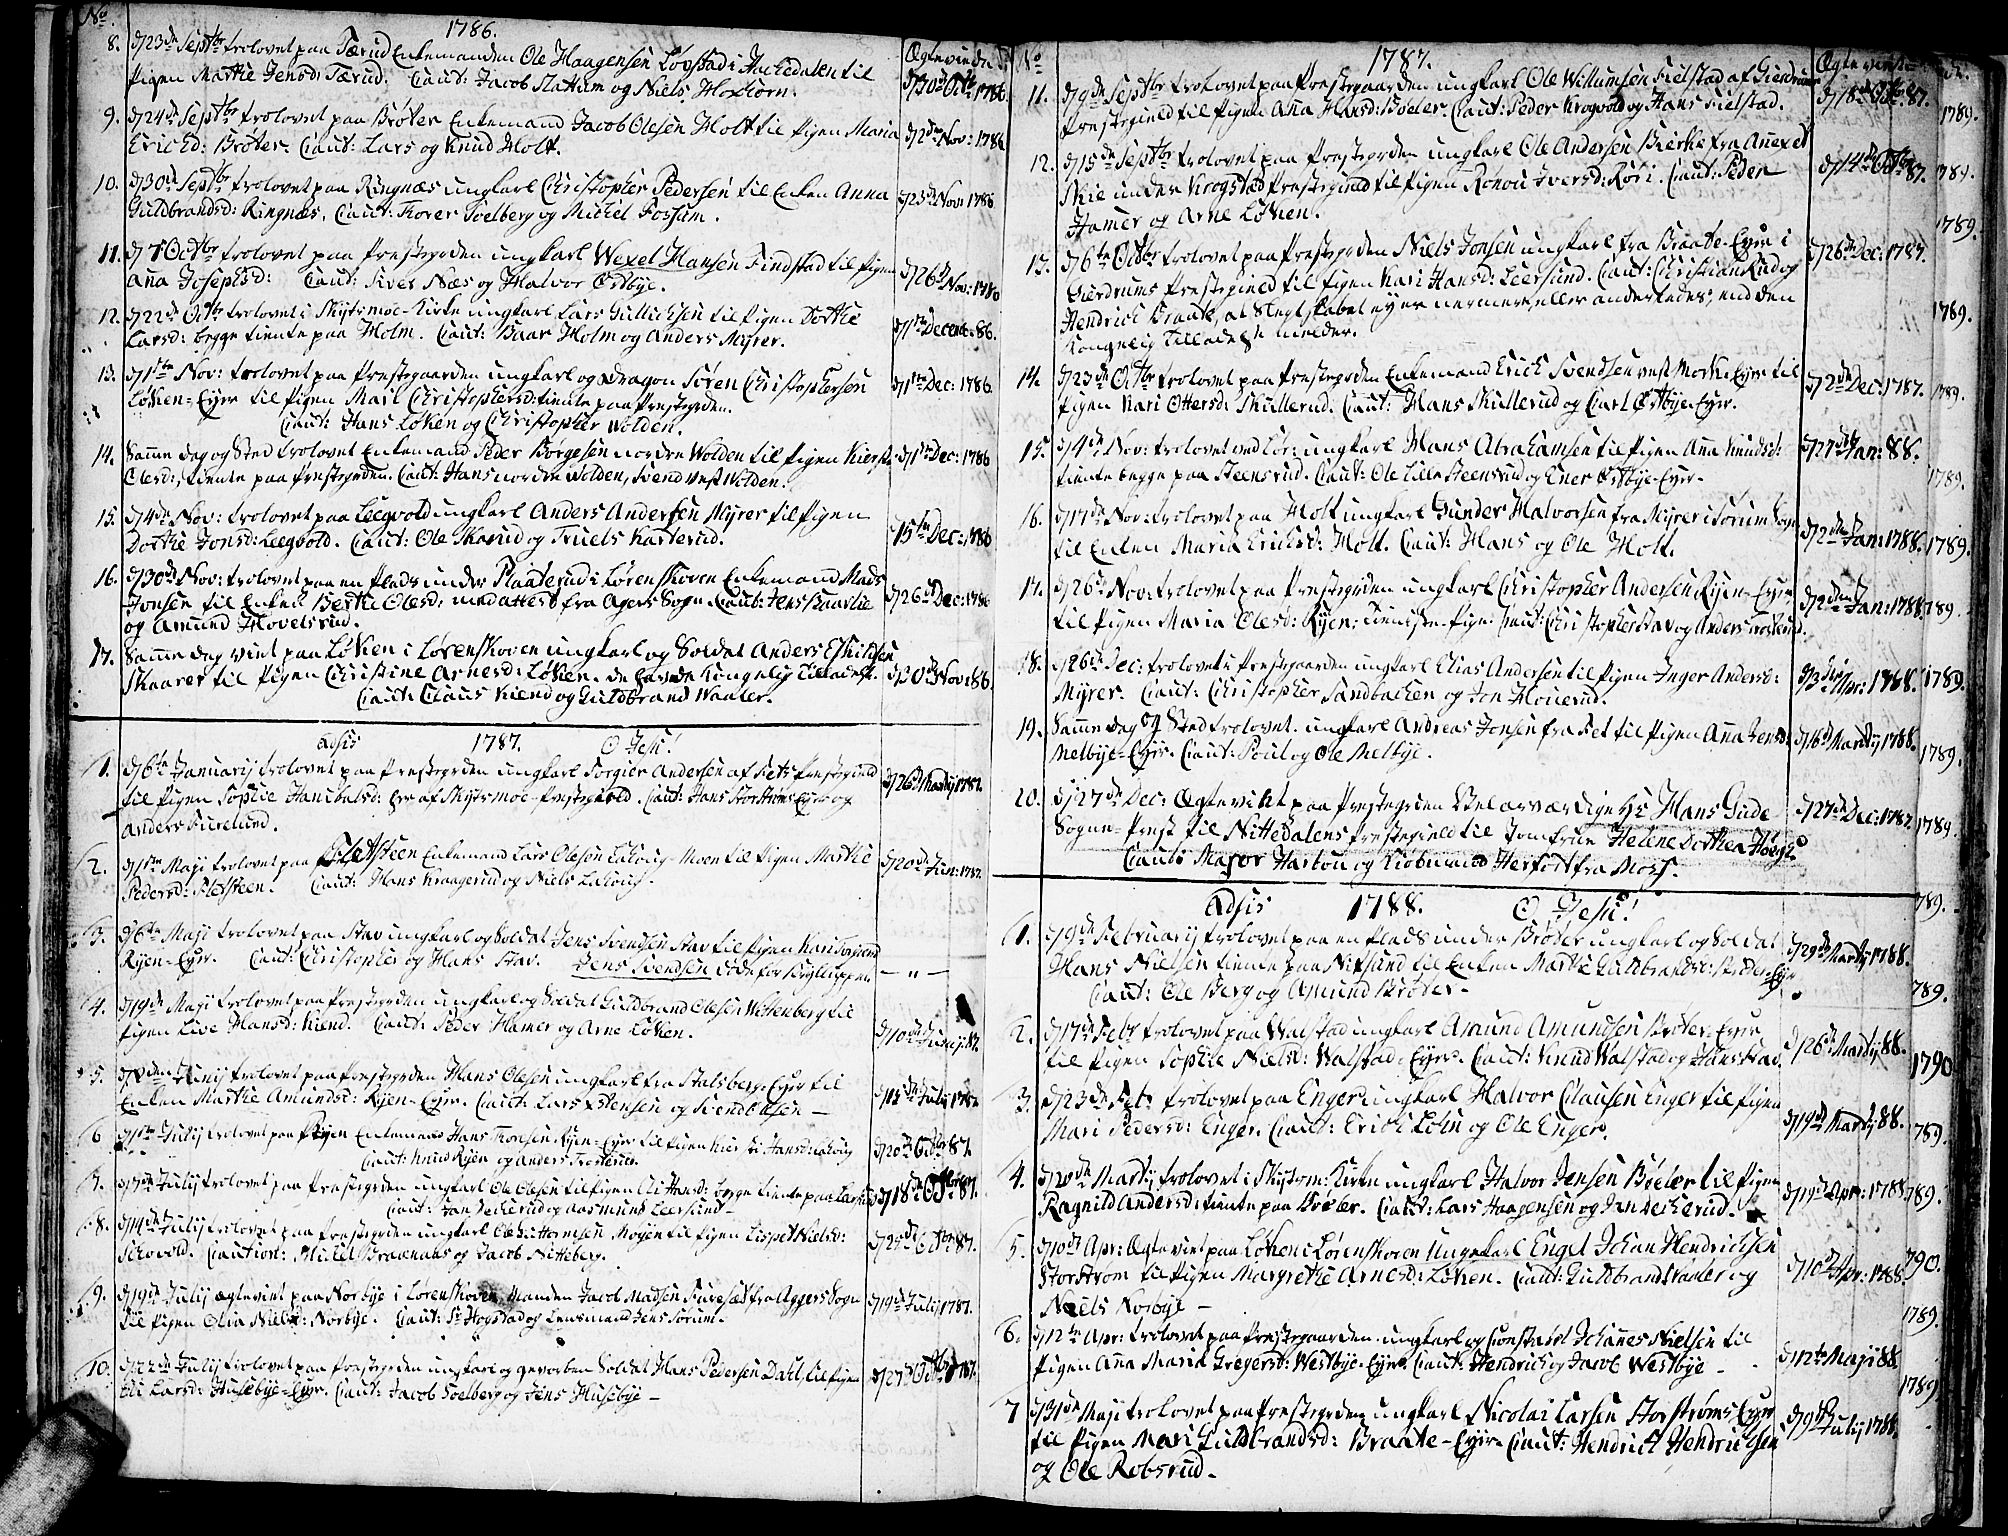 No. 1786. Ægteviede
8. d 23de Septbr trolovet paa Tærud Enkemanden Ole Haagensen Løvstad i Hackedalen til
Pigen Marthe Jensd: Tærud. Caut: Jacob Slattum og Niels Morthorn. d 30d Octbr 1786.
9. d 24de Septbr trolovet paa Brøter Enkemand Jacob Olesen Holt til Pigen Maria
Ericsd: Brøter. Caut: Lars og Knud Holt. d 2den Nov: 1786
10. d 30d Septbr trolovet paa Ringnæs ungkarl Christopher Pedersen til Enken Anna
Guldbrandsd: Ringnæs. Caut: Thorer Soelberg og Michel Fossum. d 23de Nov: 1786
11. d 7de Octbr trolovet paa Prestegrden ungkarl Wexel Hansen Findstad til Pigen
Aña Josephsd: Caut: Siver Næs og Halvor Østbye. d 26d Nov: 1786
12. d 22d Octbr trolovet i Skydsmoe-Kirke ungkarl Lars Gullichsen til Pigen Dorthe
Larsd: begge tiente paa Holm. Caut: Baar Holm og Anders Myrer. d 1ste Decembr 86.
13. d 1ste Nov: trolovet paa Prestegaarden ungkarl og Dragon Søren Christophersen
Løken-Eyer til Pigen Mari Christophersd: tiente paa Prestegrden. d 1ste Dec: 1786.
Caut: Hans Løken og Christopher Wolden.
14. Samme dag og Sted trolovet Enkemand Peder Børgesen nordre Wolden til Pigen Kiersti
Olesd:, tiente paa Prestegrden. Caut: Hans nordre Wolden, Svend vest Wolden. d 1ste Dec: 1786
15. d 4de Nov: trolovet paa Leegvold ungkarl Anders Andersen Myrer til Pigen
Dorthe Jonsd: Leegvold. Caut: Ole Skarud og Truels Karterud. d 15ten Dec: 1786
16. d 30de Nov: trolovet paa en Plads under Raaterud i Lørenskoven Enkemand Mads
Jonsen til Enken Berthe Olesd: med attest fra Agers Sogn. Caut: Jens Baarlie
og Amund Hovelsrud. d 26d Dec: 1786
17. Samme dag viet paa Løken i Lørenskoven ungkarl og Soldat Anders Eskildsen
Skaarer til Pigen Christine Arnesd: Løken. de havde Kongelig Tilladelse. d 30d Nov: 86.
Caut: Claus Kiend og Guldbrand Waaler.
Adsis 1787. O Jesu!
1. d 6te Januarij trolovet paa Prestegrden ungkarl Torgier Andersen af Fets Prestegield
til Pigen Sophie Hanibalsd: her af Skydsmoe-Prestegield. Caut: Hans Storstrøms Eyer og
Anders Furelund. d 26d Martij 1787.
2. d 1ste Maji trolovet paa Fletsteen Enkemand Lars Olesen Lahoug-Moen til Pigen Marthe
Pedersd: Fletsteen. Caut: Hans Kraagerud og Niels Lahoug. d 20d Jun: 1787.
3. d 6te Maji trolovet paa Stav ungkarl og Soldat Jens Svendsen Stav til Pigen Kari
Ryen-Eyer. Caut: Christopher og Hans Stav. Jens Svendsen døde før Brylluppet. — „ —
4. d 19de Maji trolovet paa Prestegrden ungkarl og Soldat Guldbrand Olesen Wittenberg til
Pigen Live Hansd: Kiend. Caut: Peder Hamer og Arne Løken. d 10de Junij 87.
5. d 2den Junij trolovet paa Prestegrden Hans Olesen ungkarl fra Stalsberg-Eyer til
Enken Marthe Amundsd: Ryen-Eyer. Caut: Lars Østensen og Svend Olesen — d 12te Julij 1787
6. d 1ste Julij trolovet paa Ryen Enkemand Hans Thorsen Ryen-Eyer til Pigen Kiersti Hansd: Lahoug
Caut: Knud Ryen og Anders Trosterud. d 20d Octbr 87.
7. d 7de Julij trolovet paa Prestegrden ungkarl Ole Olesen til Pigen Eli Hansd: begge tiente paa Larsrud
Caut: Jan Deckerud og Aasmund Leersund — d 18de Octbr 87.
8. d 14de Julij trolovet paa Prestegrden ungkarl Ole Thomsen Moyen til Pigen Lispet Nielsd:
Schovold. Caution: Michel Braanaas og Jacob Nitteberg. d 29de Octbr 87.
9. d 19de Julij ægteviet paa Norbye i Lørenskoven Manden Jacob Madsen Furesæt fra Aggers Sogn
til Pigen Olia Nielsd: Norbye. Caut: Sr Hogstad og Lensmand Jens Sørum. d 19d Julij 1787.
10. d 22de Julij trolovet paa Prestegrden ungkarl og gevorben Soldat Hans Pedersen Dahl, til Pigen
Eli Larsd: Husebye-Eyer. Caut: Jacob Soelberg og Jens Husebye — d 27d Octbr 1787.
No 1787. Ægteviede
11. d 9de Septbr trolovet paa Prestegaarden ungkarl Ole Willumsen Fielstad af Gierdrums
Prestegield til Pigen Aña Hansd: Bøeler. Caut: Peder Krogvold og Hans Fielstad. d 18de Octbr 87.
12. d 15de Septbr trolovet paa Prestegrden ungkarl Ole Andersen Bierke fra Anexet
Skie under Krogstad Prestegield til Pigen Ronou Iversd: Røri. Caut: Peder
Hamer og Arne Løken. d 14de Octbr 87.
13. d 6te Octbr trolovet paa Prestegrden Niels Jonsen ungkarl fra Braate-Eyer i
Gierdrums Prestegield til Pigen Kari Hansd: Leersund. Caut: Christian Rud og
Hendrich Braate, at Slegtskabet ey er nermere, eller anderledes, end den
Kongelig Tilladelse melder. d 26de Dec: 1787.
14. d 23de Octbr trolovet paa Prestegrden Enkemand Erich Svendsen vest Mork-Eyer til
Pigen Kari Ottersd: Skullerud. Caut: Hans Skullerud og Carl Østbye-Eyer. d 2de Dec: 1787.
15. d 4de Nov: trolovet ved Lør: ungkarl Hans Abrahamsen til Pigen Aña Knudsd:
tiente begge paa Steensrud. Caut: Ole Lille Steensrud og Ener Østbye-Eyer. d 27de Jan: 88.
16. d 17de Nov: trolovet paa Holt ungkarl Gunder Halvorsen fra Myrer i Sørum Sogn
til Enken Maria Erichsd: Holt. Caut: Hans og Ole Holt. d 2den Jan: 1788.
17. d 26d Nov: trolovet paa Prestegrden ungkarl Christopher Andersen Ryen-Eyer
til Pigen Maria Olesd: Ryen; tieniste-Pige. Caut: Christopher Stav og Anders Trosterud. d 2den Jan: 1788.
18. d 26de Dec: trolovet i Prestegaarden ungkarl Elias Andersen til Pigen Inger Andersd:
Myrer. Caut: Christopher Sandbacken og Jon Houerud. d 3die Apr: 1788.
19. Samme dag og Sted trolovet ungkarl Andreas Jonsen fra Fet til Pigen Aña Jensd:
Melbye-Eyer. Caut: Poul og Ole Melbye. d 16d Martij 1788.
20. d 27de Dec: Ægteviht paa Prestegrden Velærværdige Hr Hans Gude
Sogne-Prest til Nittedalens Prestegield til Jomfrue Helene Dorthea Høegh
Caut: Major Harbou og Kiøbmand Herfort fra Moss. d 27de Dec: 1787.
Adsis 1788. O Jesu!
1. d 9de Februarij trolovet paa en Plads under Brøter ungkarl og Soldat
Hans Nielsen tiente paa Nitsund til Enken Marthe Guldbrandsd: Brøter-Eyer
Caut: Ole Berg og Amund Brøter — d 29de Martij 1788.
2. d 17de Febr trolovet paa Walstad ungkarl Amund Amundsen Brøter-Eyer
til Pigen Sophie Nielsd: Walstad-Eyer. Caut: Knud Walstad og Hans Stav. d 26de Martij 88.
3. d 23de Febr trolovet paa Enger ungkarl Halvor Clausen Enger til Pigen
Mari Pedersd: Enger. Caut: Erich Løhn og Ole Enger. d 19de Martij 88.
4. d 20de Martij trolovet i Skydsm: Kirke ungkarl Halvor Jensen Bøeler til Pigen
Ragnild Andersd: tiente paa Bøeler. Caut: Lars Haagensen og Jan Deckerud. d 19de Apr: 1788
5. d 10de Apr: Ægteviet paa Løken i Lørenskoven Ungekarl Engel Johan Hendrichsen
Storstrøm til Pigen Margrethe Arnesd: Løken. Caut: Guldbrand Waaler og
Niels Norbye — d 10d Apr: 1788
6. d 12te Apr: trolovet paa Prestegaarden ungkarl og Constabel Johanes Nielsen til
Pigen Aña Maria Gregersd: Westbye-Eyer. Caut: Hendrich og Jacob Westbye — d 12te Maji 88.
7 d 31de Maji trolovet paa Prestegrden ungkarl Nicolai Larsen Storstrøms-Eyer
til Pigen Mari Guldbrandsd: Braate-Eyer. Caut: Hendrich Hendrichsen
og Ole Robsrud. d 9de Julij 1788.
1789.
1789.
1789.
1789.
1789.
1789.
1789.
789.
1789.
1789.
1789.
789.
789.
1790
789.
789.
790.
1789.
1789.